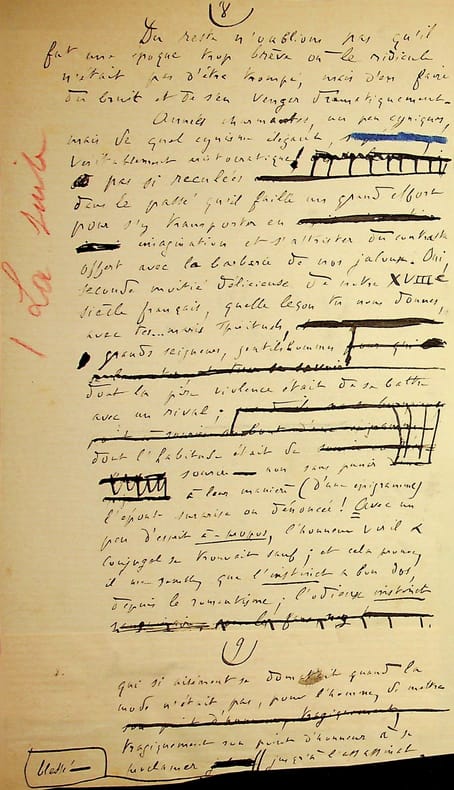 8
Du reste n'oublions pas qu'il
fut une époque trop brève où le ridicule
n'était pas d'être trompé, mais d'en faire
du bruit et de s'en venger dramatiquement.
Années charmantes, un peu cyniques,
mais de quel cynisme élégant,
véritablement aristocratique!
pas si reculées
dans le passé qu'il faille un grand effort
pour s'y transporter en
imagination et s'attrister du contraste
offert avec la barbarie de nos jaloux. Oui,
seconde moitié délicieuse de notre XVIIIe
siècle français, quelle leçon tu nous donnes
avec tes...maris spirituels,
grands seigneurs, gentilshommes
dont la pire violence était de se battre
avec un rival;
dont l'habitude était de
sourire — non sans punir
à leur manière (d'une épigramme)
l'épouse surprise ou dénoncée! Avec un
peu d'esprit à-propos, l'honneur viril &
conjugal se trouvait sauf; et cela prouve,
il me semble, que l'instinct a bon dos,
depuis le romantisme; l'odieux instinct
9
qui si aisément se domptait quand la
mode n'était pas, pour l'homme, de mettre
tragiquement son point d'honneur à se
proclamer jusqu'à l'assassinat.
blessé—
La suite